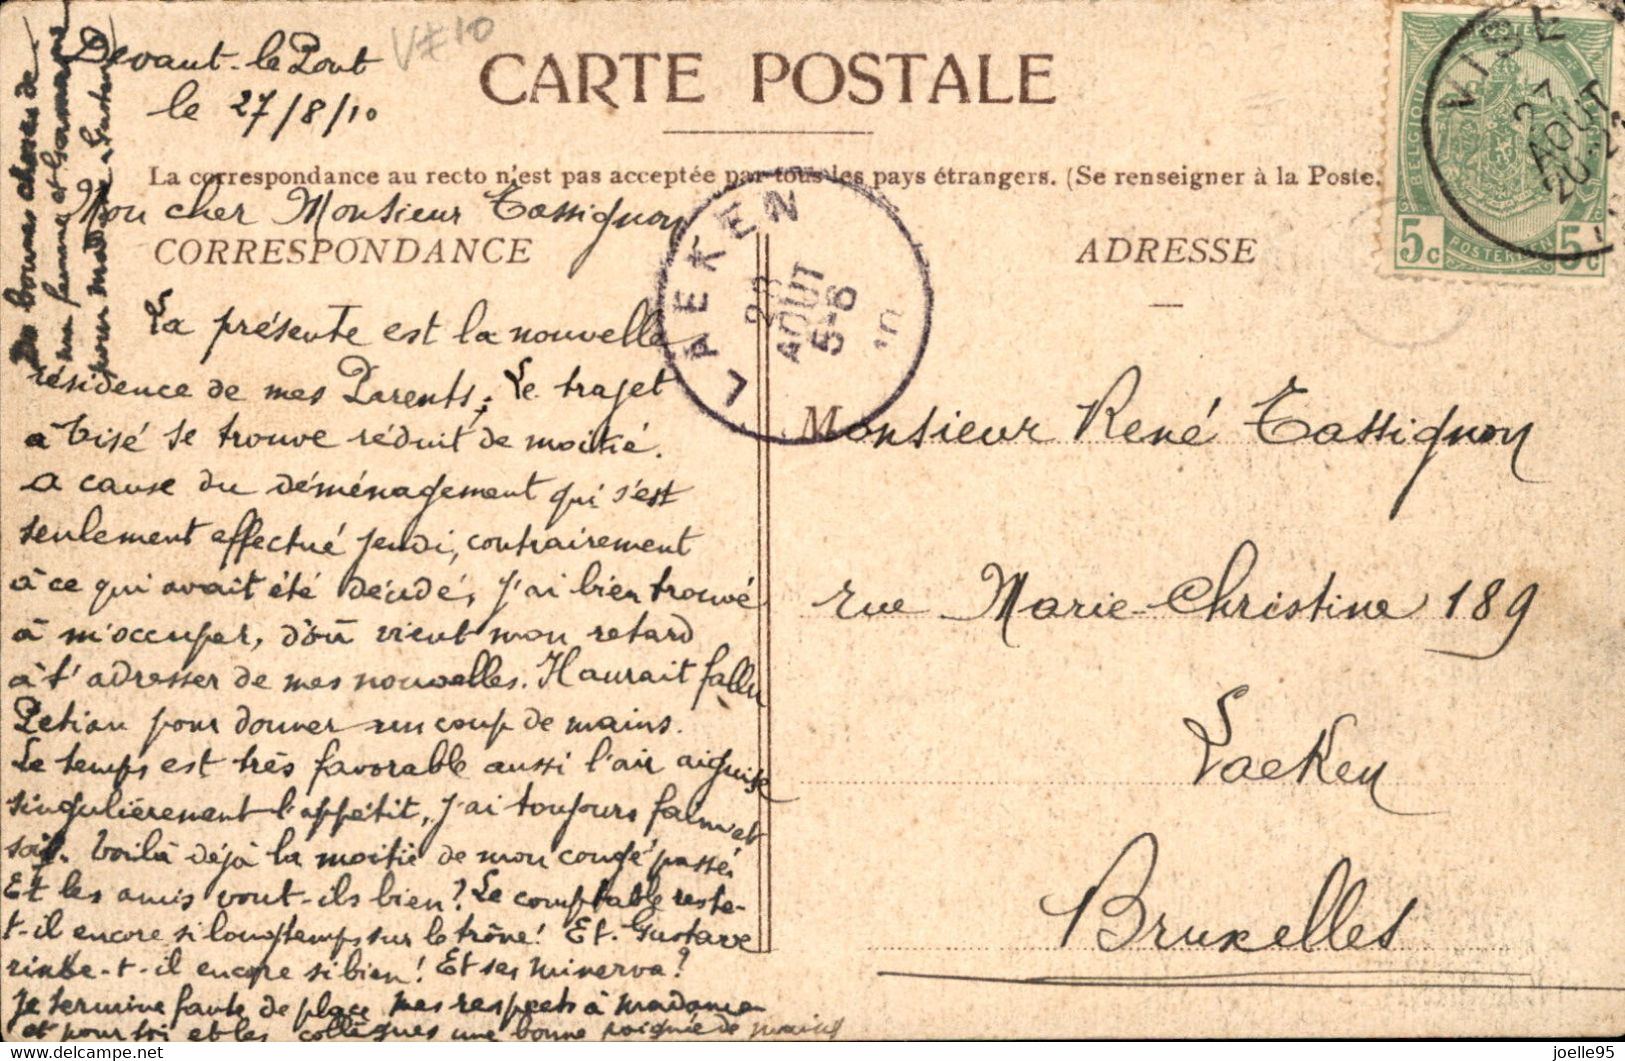 Devant-le Pont
V#10
le 27/8/10
CARTE POSTALE
La correspondance au recto n'est pas acceptée par tous les pays étrangers. (Se renseigner à la Poste.
Mon cher Monsieur Tassignon
CORRESPONDANCE
La présente est la nouvelle
résidence de mes Parents; Le trajet
à Visé se trouve réduit de moitié.
A cause du déménagement qui s'est
seulement effectué jeudi, contrairement
à ce qui avait été décidé, j'ai bien trouvé
à m'occuper, d'où vient mon retard
à t'adresser de mes nouvelles. Il aurait fallu
pour donner un coup de mains.
Le temps est très favorable aussi l'air aiguise
singulièrement l'appétit, j'ai toujours faim et
soif. Voilà déjà la moitié de mon congé passé.
Et les amis vont-ils bien? Le comptable reste-
t-il encore si longtemps sur le trône! Et Gustave
-t-il encore si bien! Et ses minerva?
je termine faute de place mes respects à madame
et pour toi et les collègues une bonne poignée de mains
De bonnes choses de
ma femme et Germaine
pour madame Gustave
ADRESSE
Monsieur René Tassignon
rue Marie-Christine 189
Laeken
Bruxelles
LAEKEN 2
28
AOUT
5-6
10
VISE
27
AOUT
20-21
BELGIQUE
5c POSTERIJEN 5c
joelle95